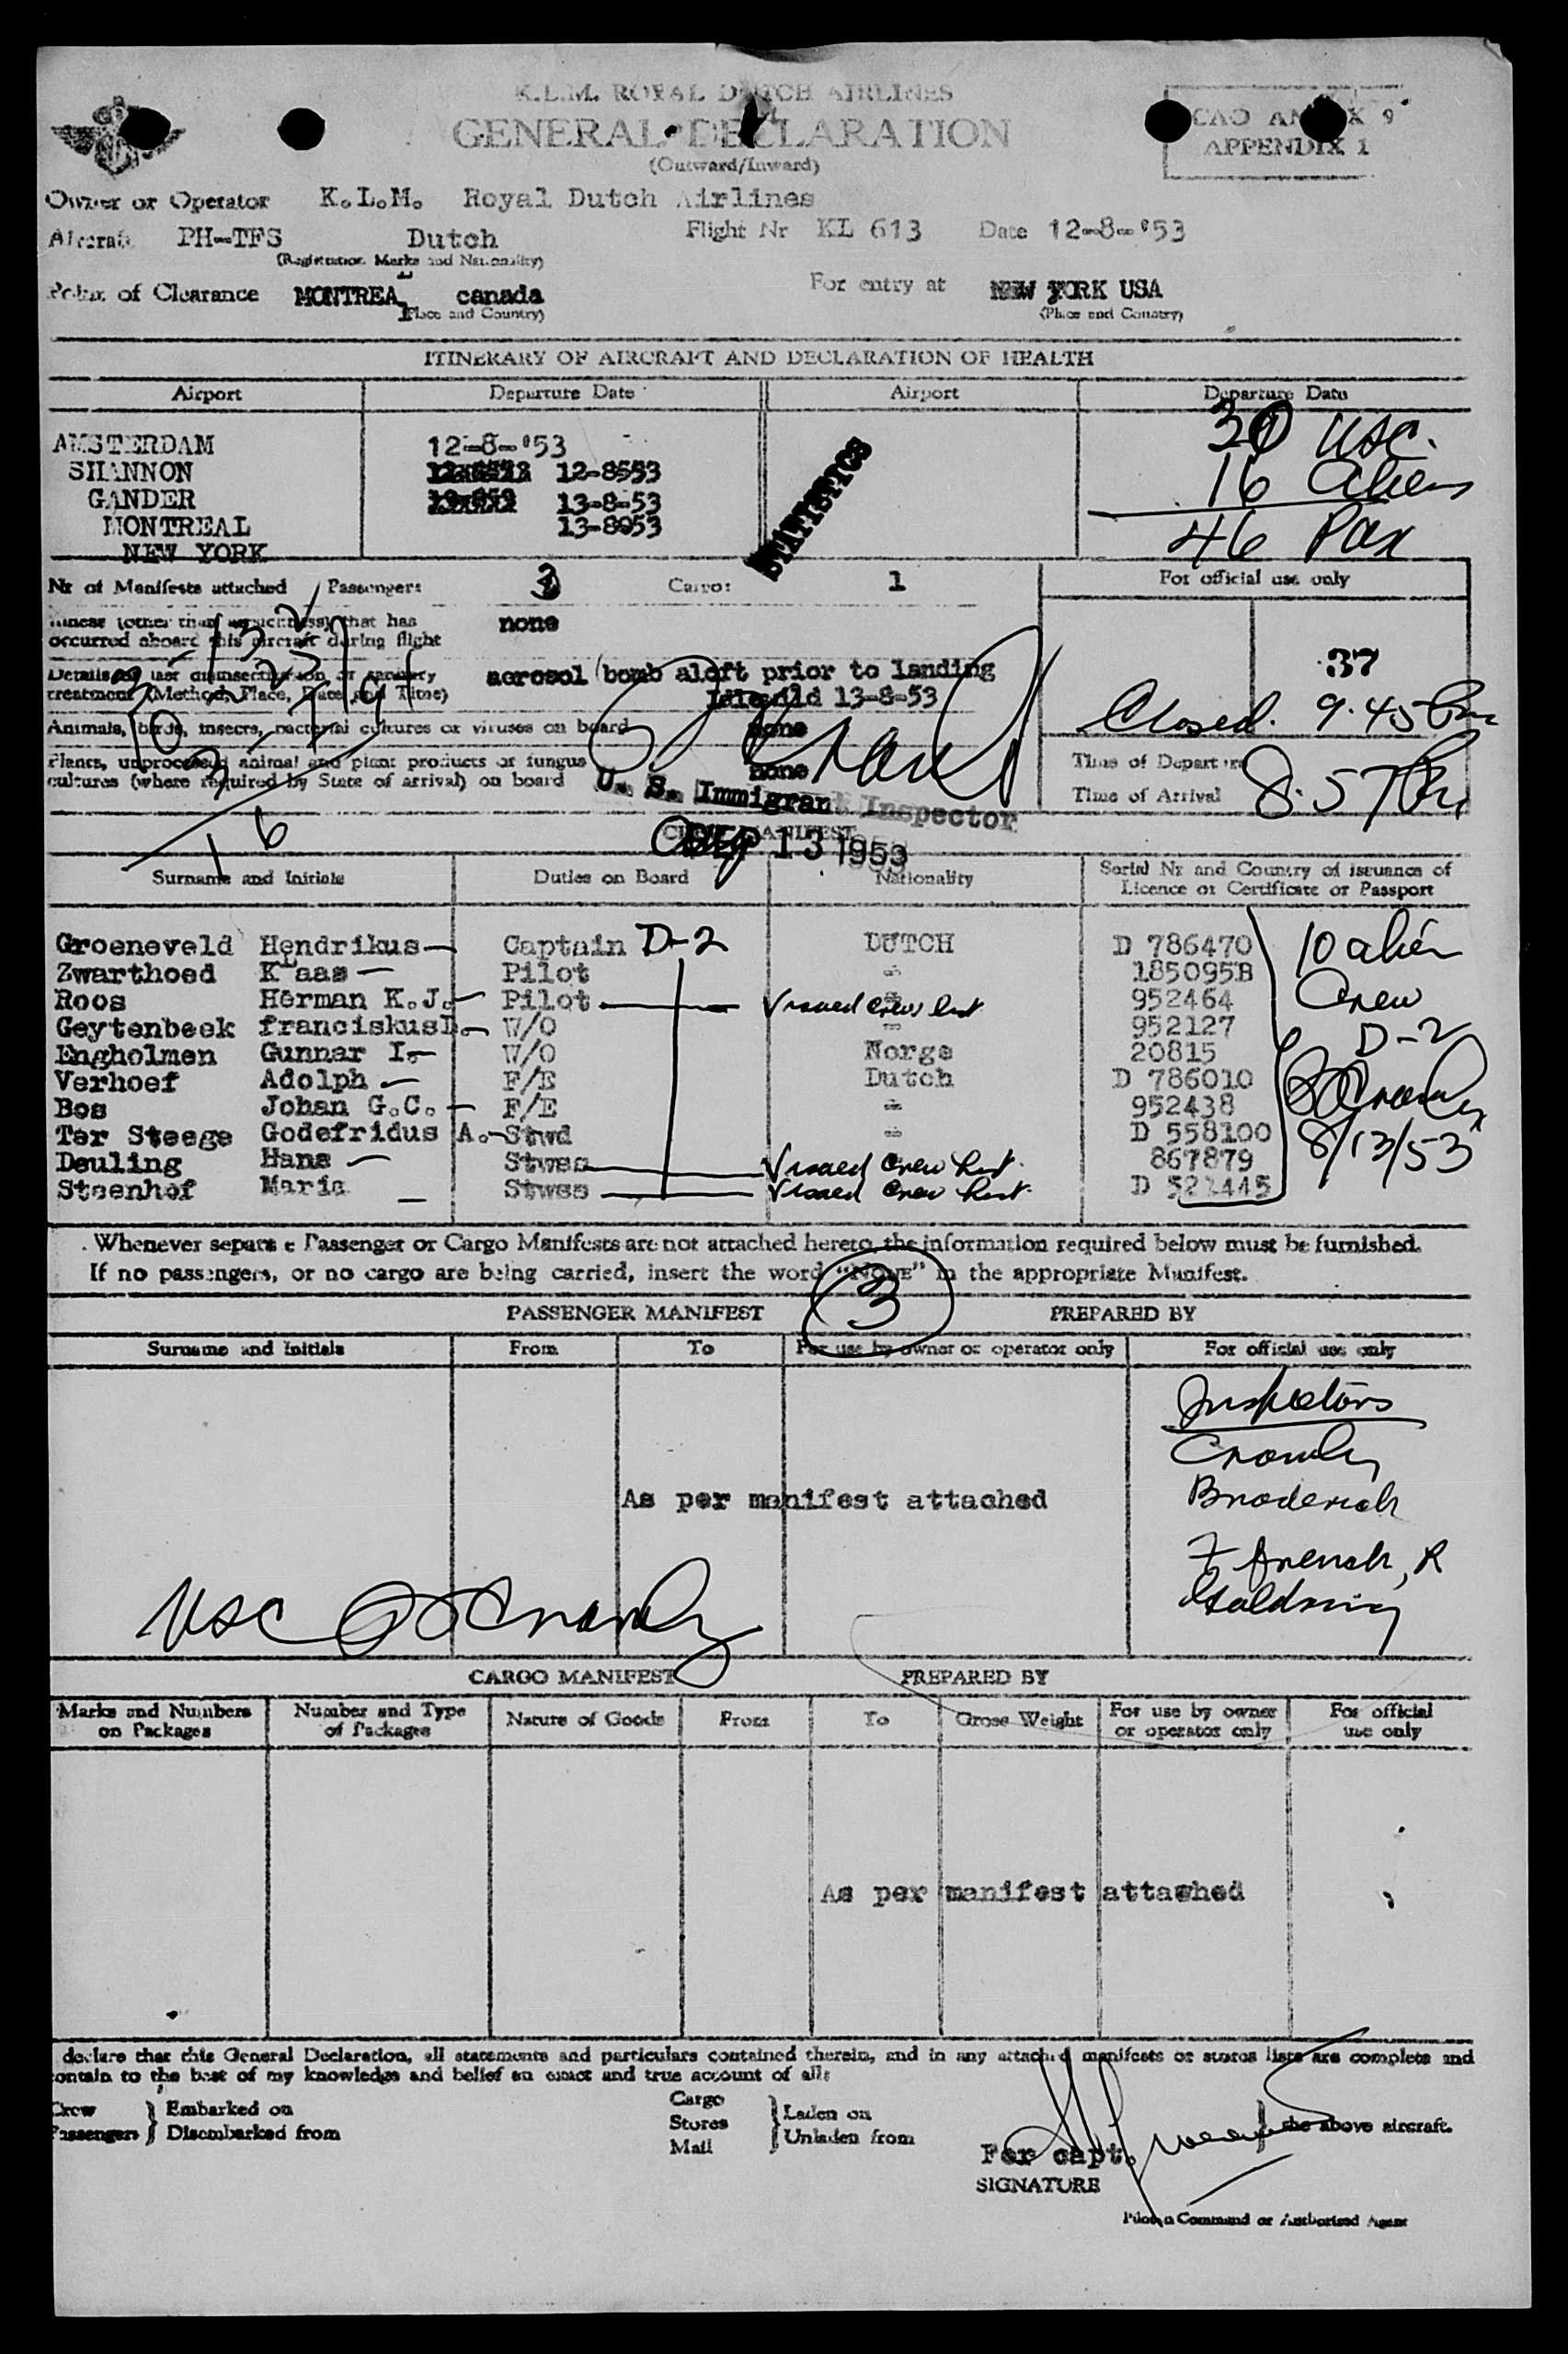 K.L.M. ROYAL DUTCH AIRLINES
GENERAL DECLARATION
(Outward/Inward)
ICAO ANNEX 9
APPENDIX 1
Owner or Operator K.L.M. Royal Dutch Airlines
Aircraft PH-TFS Dutch Flight Nr KL 613 Date 12-8-'53
(Registration Marks and Nationality)
Point of Clearance MONTREAL canada For entry at NEW YORK USA
(Place and Country) (Place and Country)
ITINERARY OF AIRCRAFT AND DECLARATION OF HEALTH
Airport Departure Date Airport Departure Date
AMSTERDAM 12-8-'53
SHANNON 12-8553
GANDER 13-8-53
MONTREAL 13-8053
NEW YORK
30 USC.
16 aliens
46 Pax
STATISTICS
Nr of Manifests attached Passengers 3 Cargo: 1 For official use only
Illness (other than airsickness) that has
occurred aboard this aircraft during flight none
Details of last disinsectisation or sanitary
treatment (Method, Place, Date and Time) aerosol bomb aloft prior to landing
Idlewild 13-8-53
37
Closed. 9.45 Pm
Animals, birds, insects, bacterial cultures or viruses on board none
Plants, unprocessed animal and plant products or fungus
cultures (where required by State of arrival) on board none
Time of Departure
Time of Arrival 8.57 Pm
U. S. Immigrant Inspector
13 1953
16
CREW MANIFEST
Surname and Initials Duties on Board Nationality Serial Nr and Country of issuance of
Licence or Certificate or Passport
Groeneveld Hendrikus Captain D-2 DUTCH D 786470
Zwarthoed Klaas Pilot -"- 185095B
Roos Herman K.J. Pilot -"- Visaed Crew list 952464
Geytenbeek franciskus D. W/O -"- 952127
Engholmen Gunnar I. W/O Norge 20815
Verhoef Adolph F/E Dutch D 786010
Bos Johan G.C. F/E -"- 952438
Ter Steege Godefridus A. Stwd -"- D 558100
Deuling Hans Stwss Visaed Crew list. 867879
Steenhof Maria Stwss Visaed Crew list. D 521445
10 alien
Crew
D-2
8/13/53
Whenever separate Passenger or Cargo Manifests are not attached hereto, the information required below must be furnished.
If no passengers, or no cargo are being carried, insert the word "NONE" in the appropriate Manifest.
3
PASSENGER MANIFEST PREPARED BY
Surname and Initials From To For use by owner or operator only For official use only
Inspectors
Cromley
Broderick
As per manifest attached
French, R
USC
CARGO MANIFEST PREPARED BY
Marks and Numbers
on Packages
Number and Type
of Packages
Nature of Goods From To Gross Weight
For use by owner
or operator only
For official
use only
As per manifest attached
declare that this General Declaration, all statements and particulars contained therein, and in any attached manifests or stores lists are complete and
contain to the best of my knowledge and belief an exact and true account of all:
Crew
Passengers
Embarked on
Disembarked from
Cargo
Stores
Mail
Laden on
Unladen from
the above aircraft.
For capt.
SIGNATURE
Pilot in Command or Authorised Agent